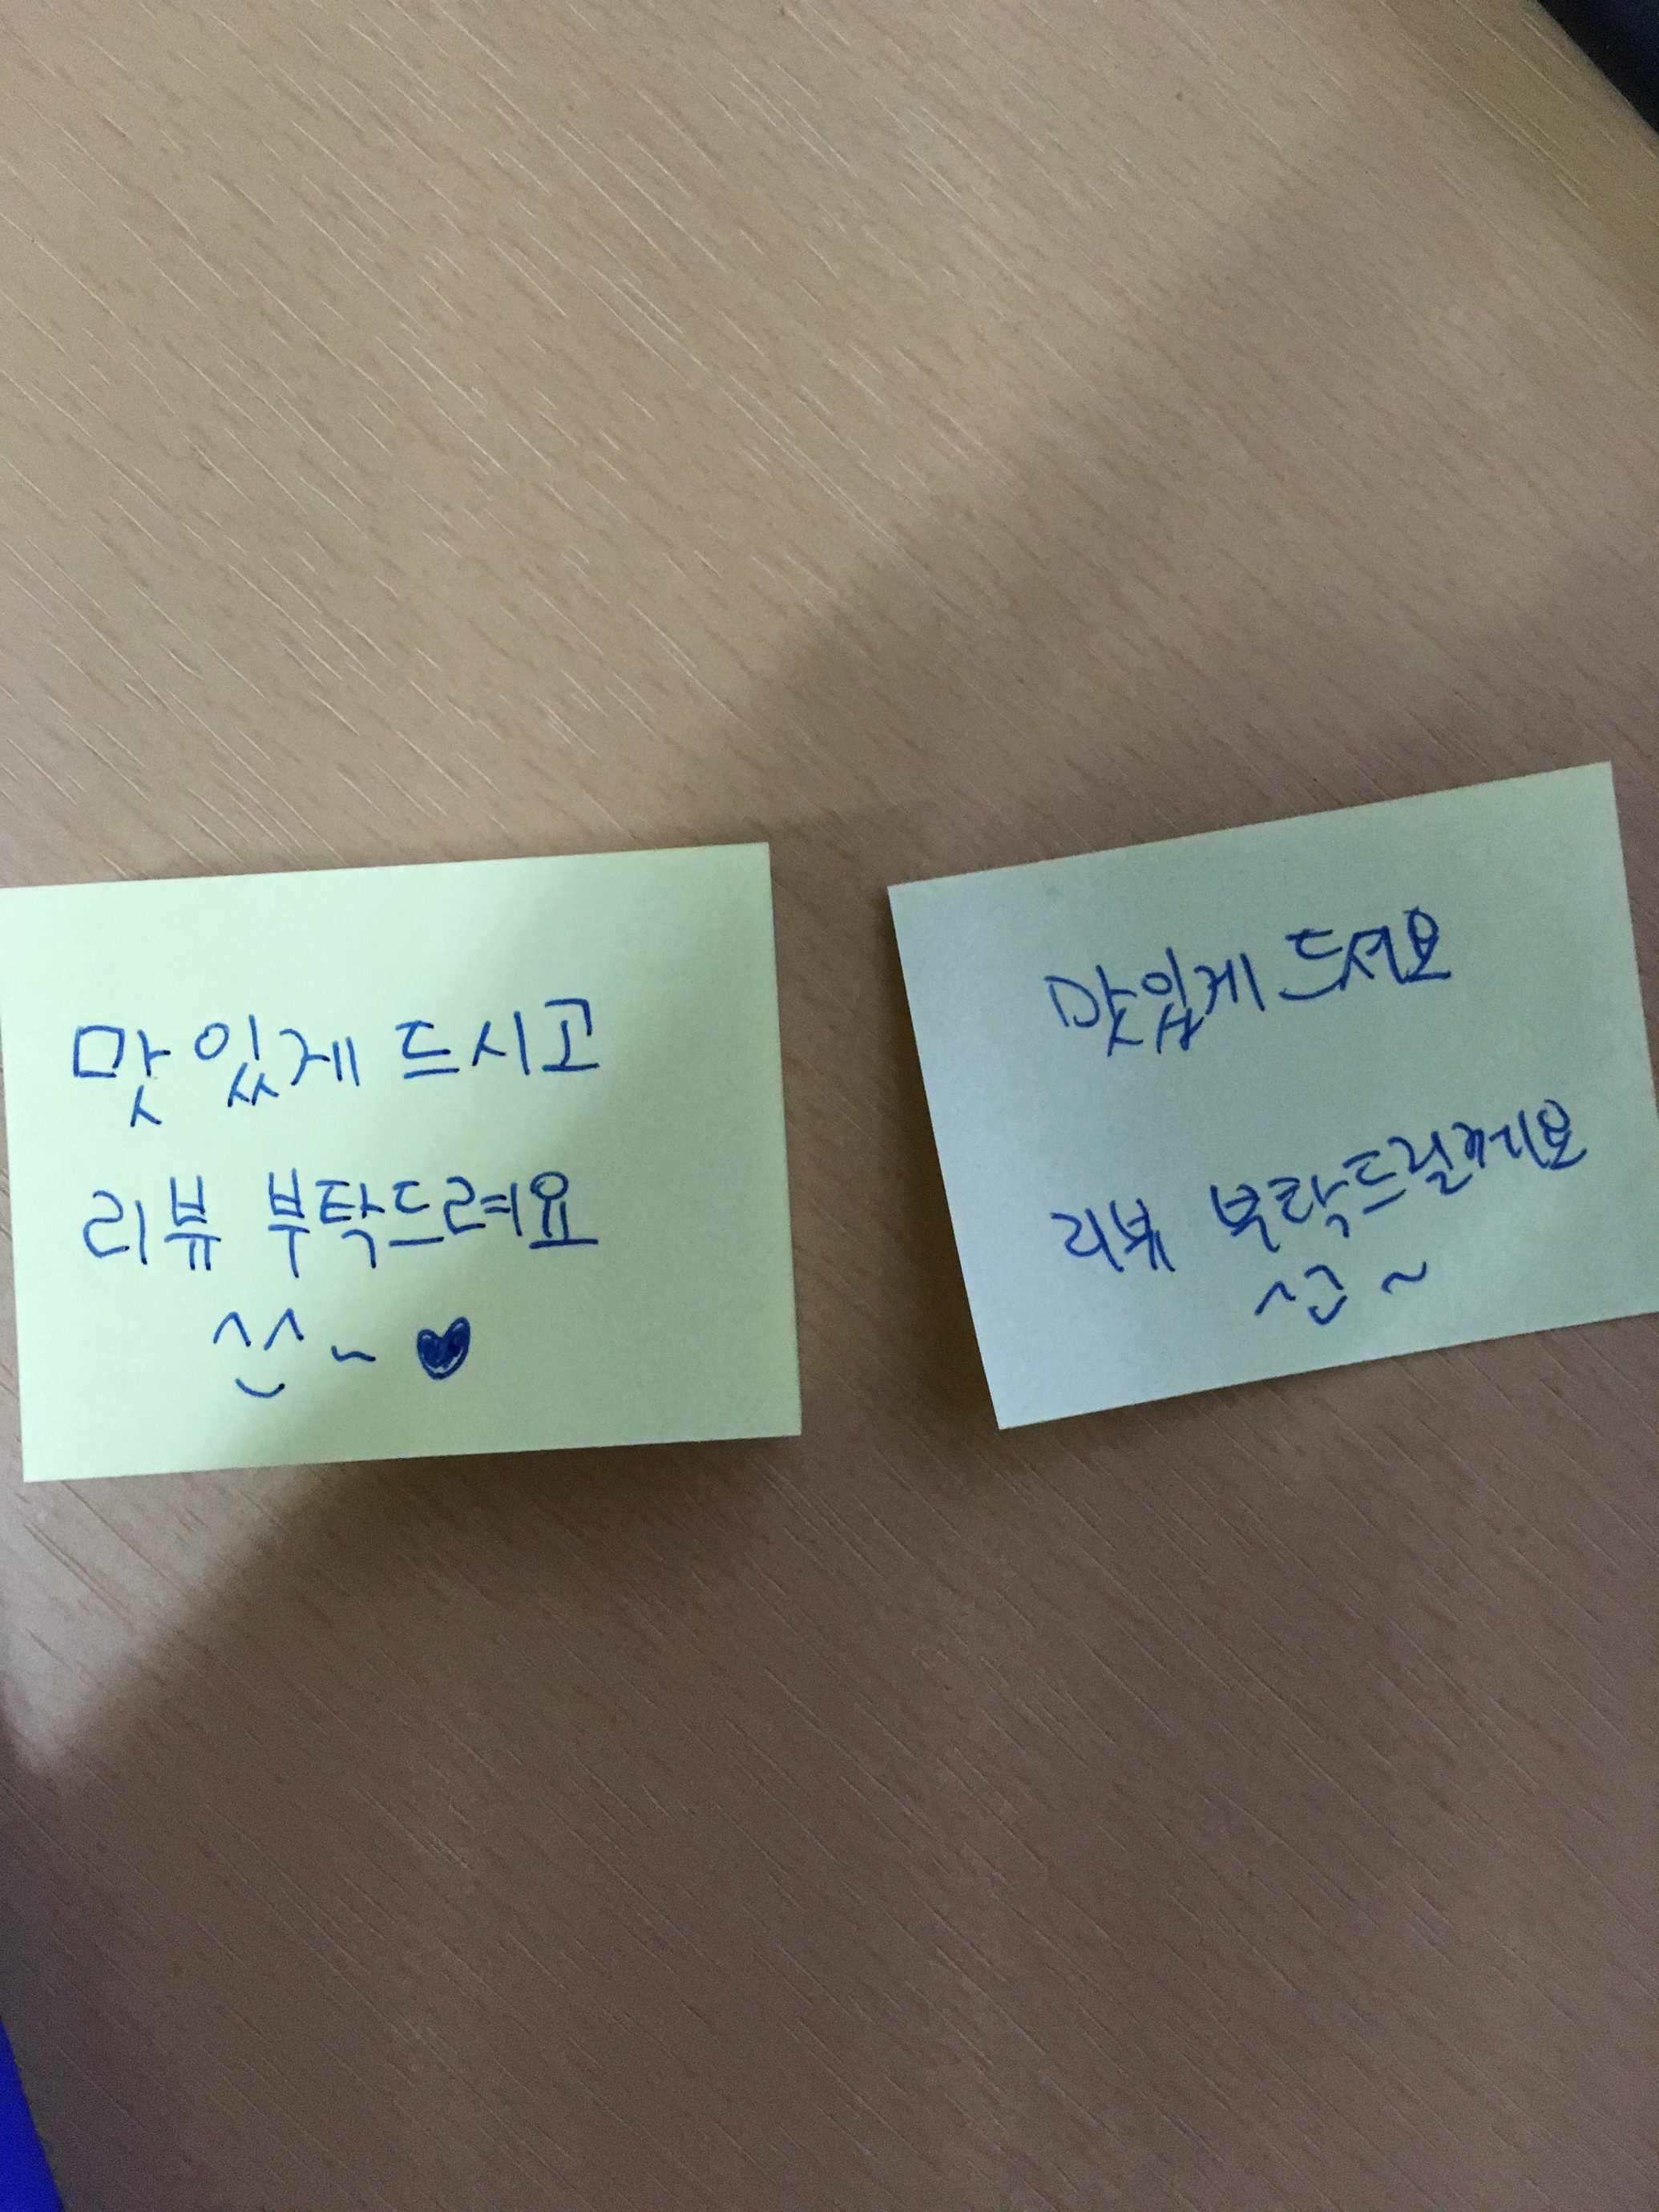 맛있게 드시고
리뷰 부탁드려요
^^~ ♥
맛있게 드세요
리뷰 부탁드릴께요
^^~